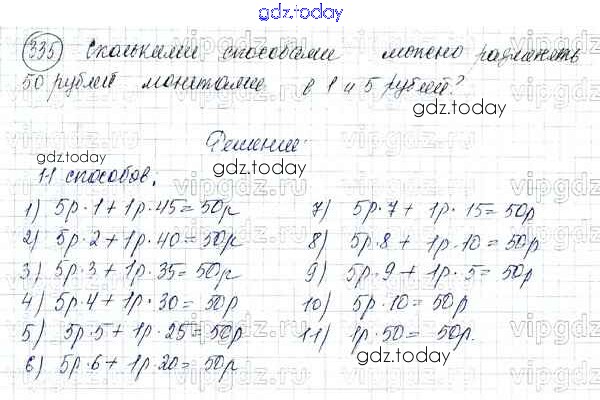 gdz.today
335 Сколькими способами можно разменять
50 рублей монетами в 1 и 5 рублей?
gdz.today
Решение:
gdz.today
11 способов:
1) 5р·1 + 1р·45 = 50р
2) 5р·2 + 1р·40 = 50р
3) 5р·3 + 1р·35 = 50р
4) 5р·4 + 1р·30 = 50р
5) 5р·5 + 1р·25 = 50р
6) 5р·6 + 1р·20 = 50р
7) 5р·7 + 1р·15 = 50р
8) 5р·8 + 1р·10 = 50р
9) 5р·9 + 1р·5 = 50р
10) 5р·10 = 50р
11) 1р·50 = 50р.
gdz.today
gdz.today
gdz.today
gdz.today
vipgdz.ru